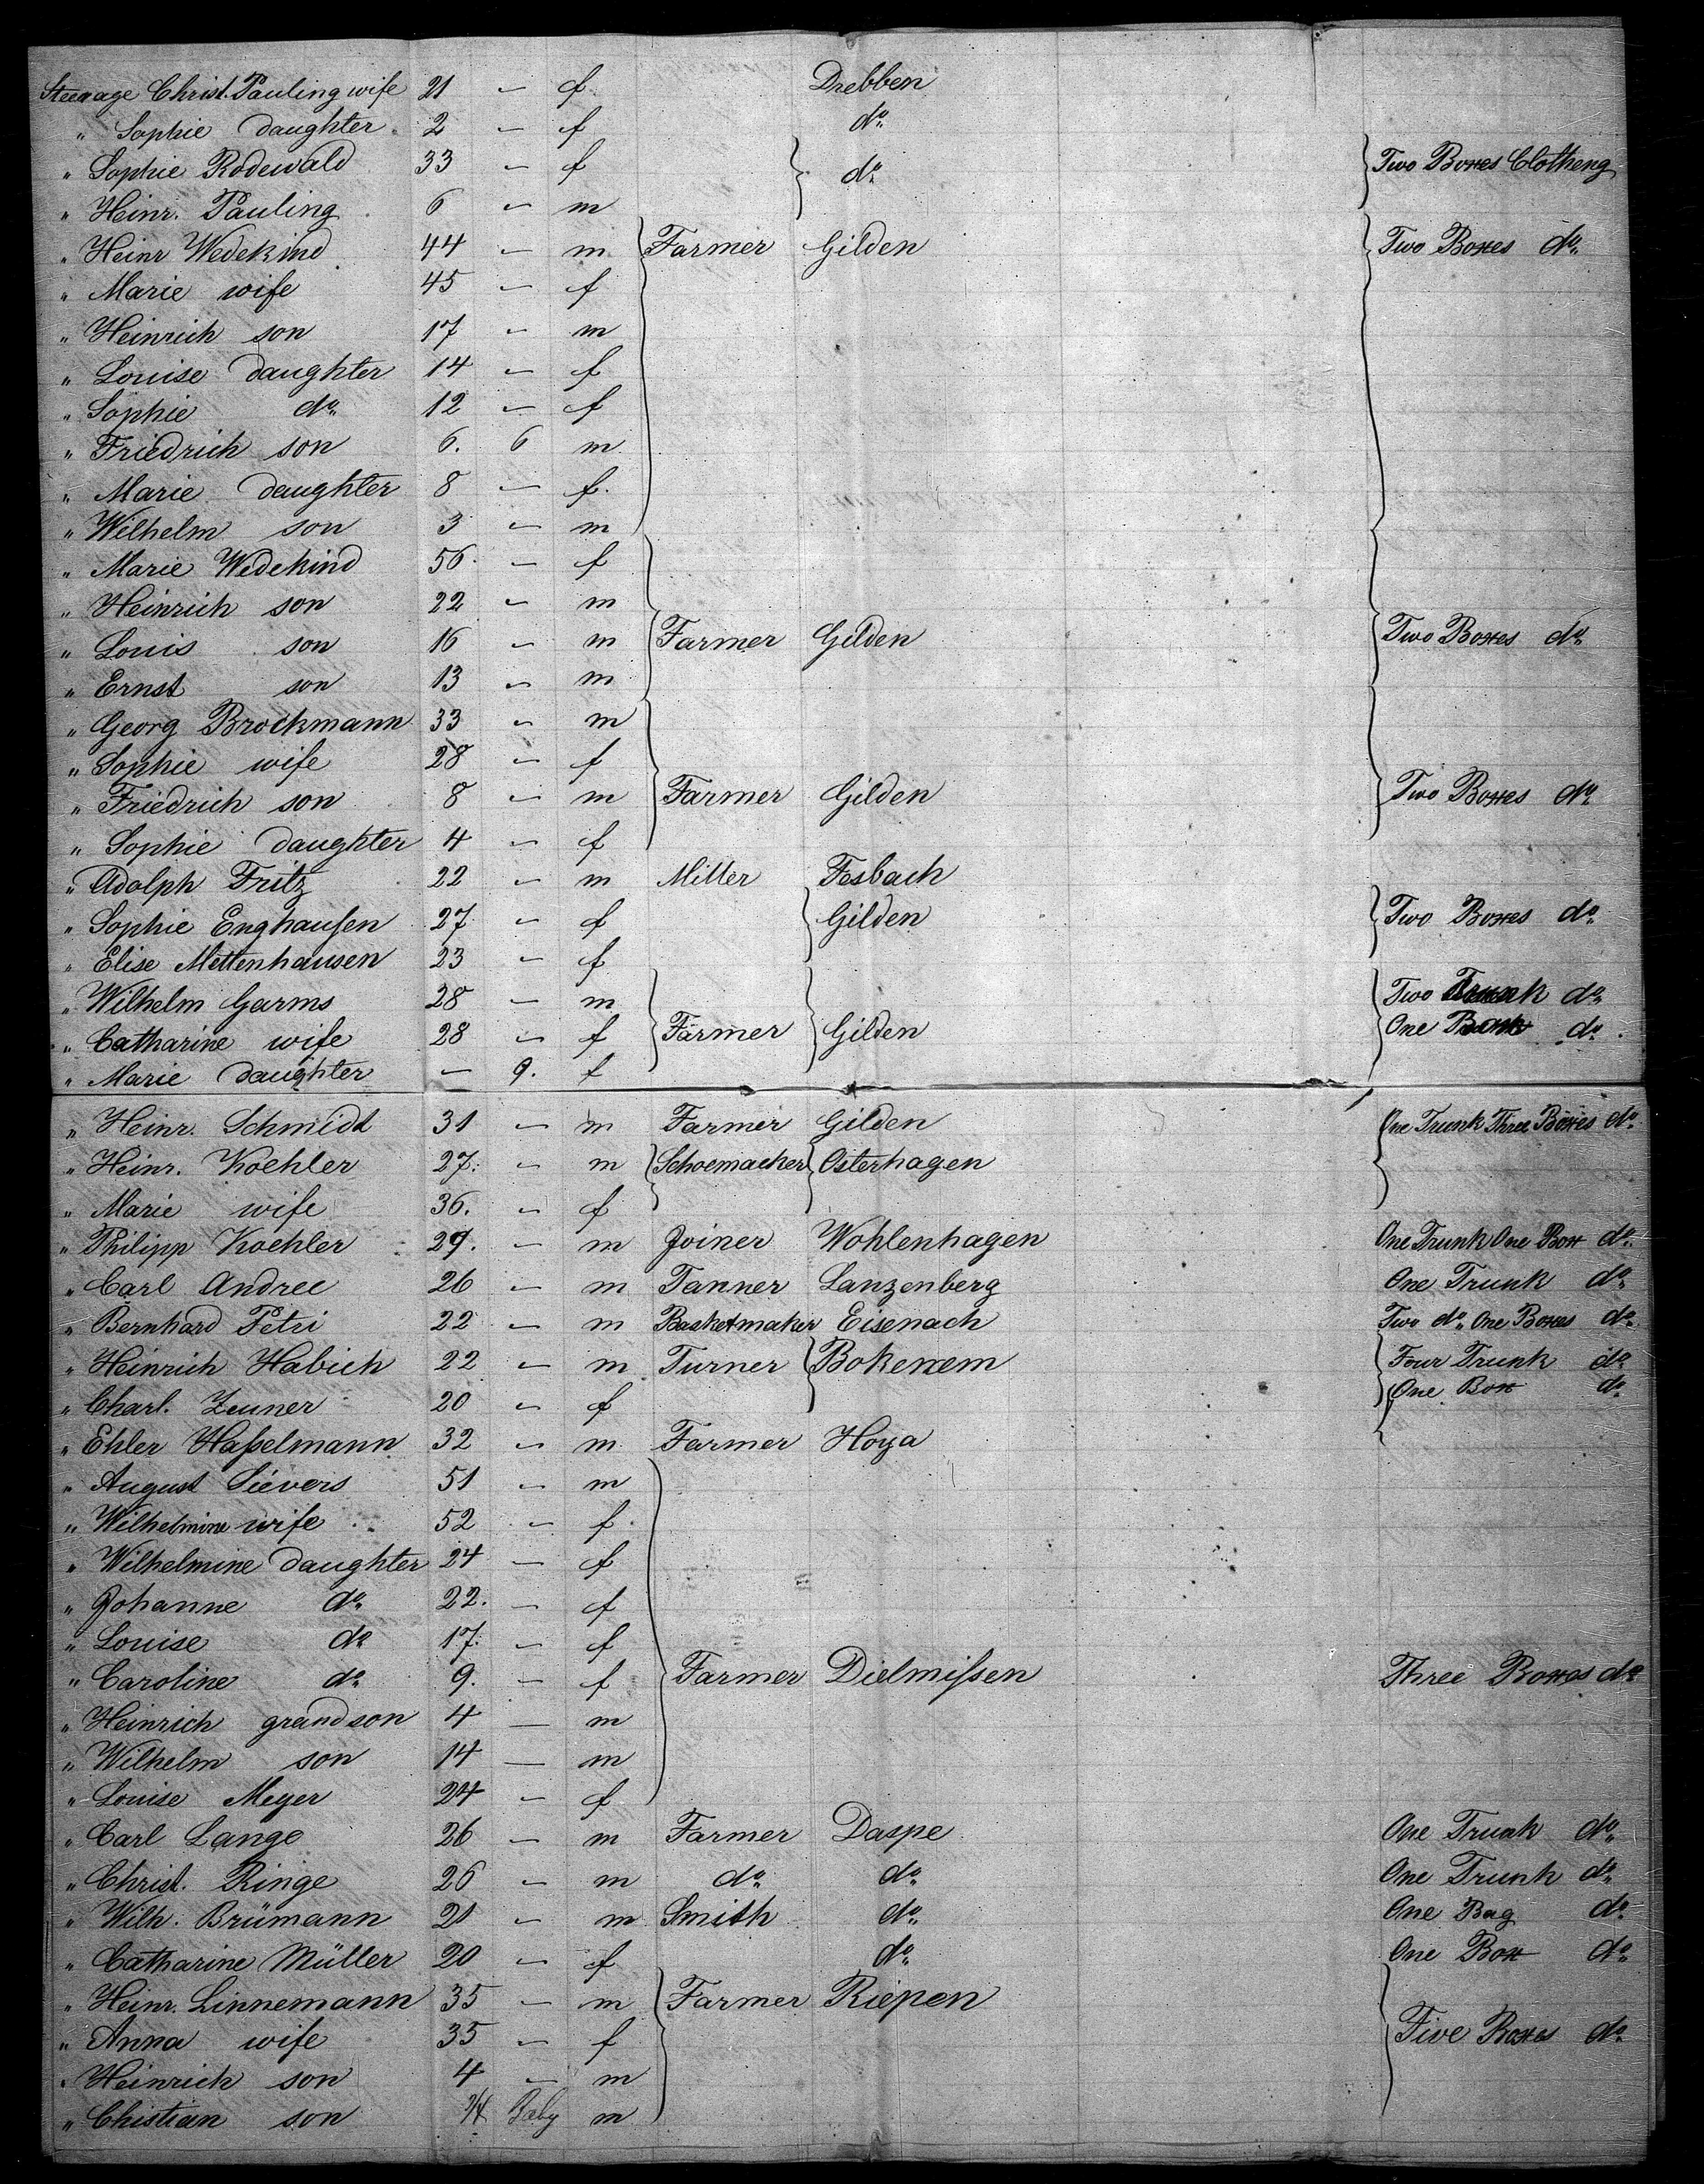 Steerage Christ. Pauling wife 21 - f. Drebben
" Sophie daughter 2 - f do.
" Sophie Rodewald 33 - f } do. } Two Boxes Clotheng
" Heinr. Pauling 6 - m
" Heinr Wedekind 44 - m Farmer Gilden Two Boxes do.
" Marie wife 45 - f
" Heinrich son 17 - m
" Louise daughter 14 - f
" Sophie do. 12 - f
" Friedrich son 6. 6 m
" Marie daughter 8 - f.
" Wilhelm son 3 - m
" Marie Wedekind 56 - f
" Heinrich son 22 - m
" Louis son 16 - m Farmer Gilden Two Boxes do.
" Ernst son 13 - m
" Georg Brockmann 33 - m
" Sophie wife 28 - f
" Friedrich son 8 - m Farmer Gilden Two Boxes do.
" Sophie daughter 4 - f
" Adolph Fritz 22 - m Miller Fesbach
" Sophie Enghaußen 27 - f } Gilden } Two Boxes do.
" Elise Mettenhausen 23 - f
" Wilhelm Garms 28 - m Two Trunk do.
" Catharine wife 28 - f Farmer } Gilden One do.
" Marie daughter - 9. f
" Heinr. Schmidt 31 - m Farmer Gilden One Trunk Three Boxes do.
" Heinr. Koehler 27. - m { Schoemacker } Osterhagen
" Marie wife 36. - f
" Philipp Koehler 29. - m Joiner Wohlenhagen One Trunk One Box do.
" Carl Andree 26 - m Tanner Lanzenberg One Trunk do.
" Bernhard Petri 22 - m Basketmaker Eisenach Two do. One Boxes do.
" Heinrich Habich 22 - m Turner { Bokenem } Four Trunk do.
" Charl. Zeuner 20 - f One Box do.
" Ehler Haßelmann 32 - m Farmer Hoya
" August Sievers 51 - m
" Wilhelmine wife 52 - f
" Wilhelmine daughter 24 - f
" Johanne do. 22. - f
" Louise do. 17. - f
" Caroline do. 9. - f Farmer Dielmißen Three Boxes do.
" Heinrich grandson 4 - m
" Wilhelm son 14 - m
" Louise Meyer 24 - f
" Carl Lange 26 - m Farmer Daspe One Trunk do.
" Christ. Ringe 26 - m do. do. One Trunk do.
" Wilh. Brümann 21 - m Smith do. One Bag do.
" Catharine Müller 20 - f do. One Box do.
" Heinr. Linnemann 35 - m Farmer Riepen
" Anna wife 35 - f Five Boxes do.
" Heinrich son 4 - m
" Chistian son 3/4 Baby m